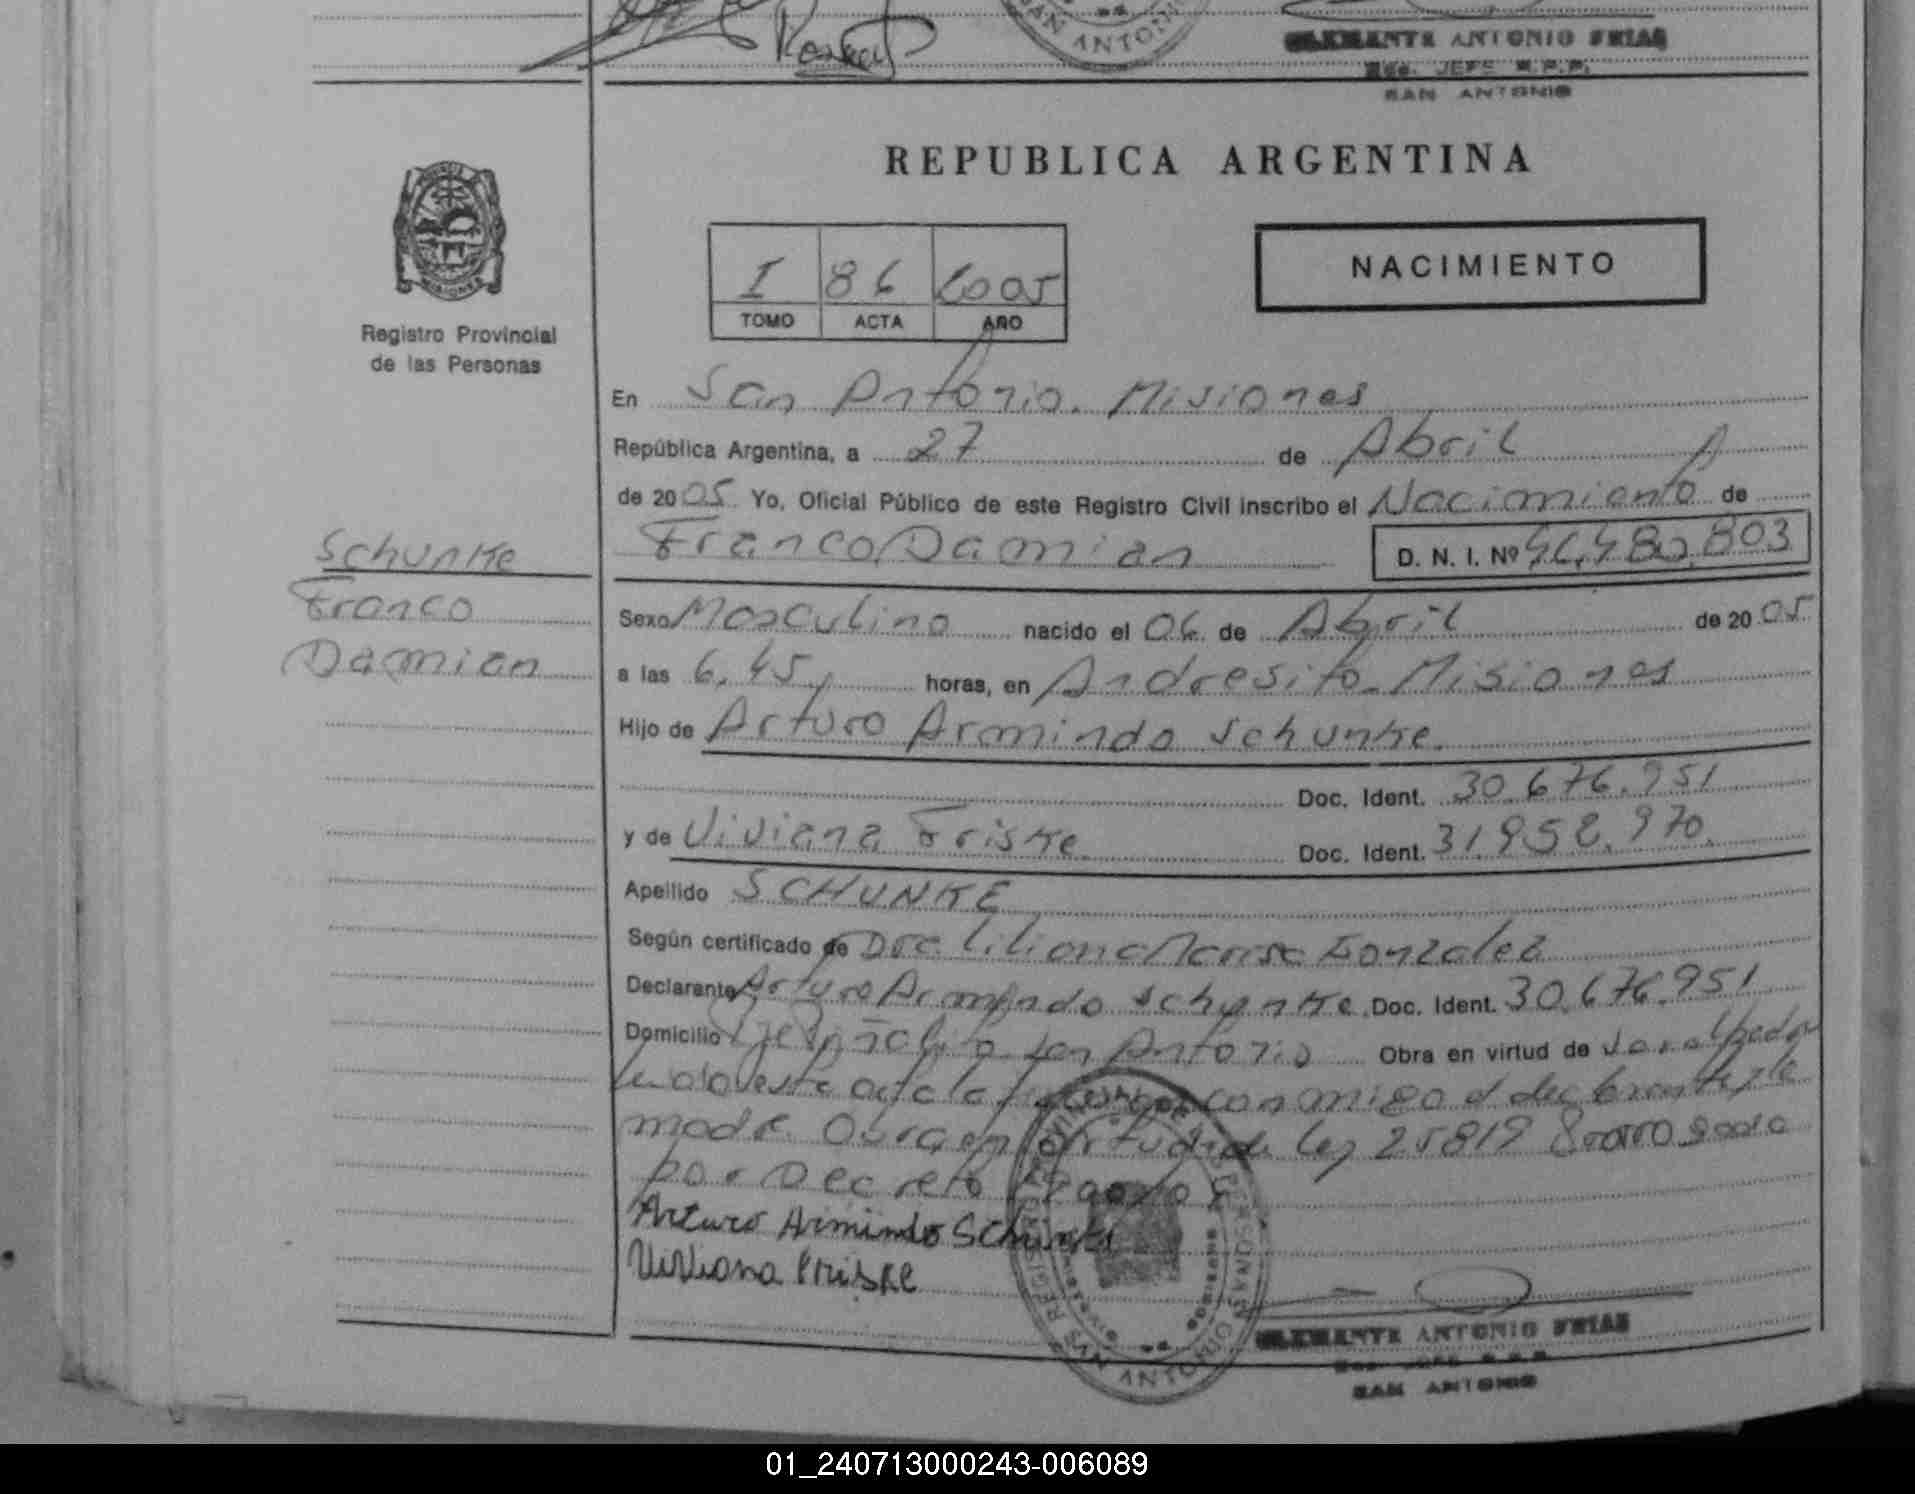 SAN ANTONIO
CLEMENTE ANTONIO FRIAS
JEFE R.P.P.
SAN ANTONIO
REPUBLICA ARGENTINA
MISIONES
Registro Provincial
de las Personas
I 86 2005
TOMO ACTA AÑO
NACIMIENTO
En San Antonio. Misiones
República Argentina, a 27 de Abril
de 20 05 Yo, Oficial Público de este Registro Civil inscribo el Nacimiento de
Schunke
Franco
Damian
Franco Damian D. N. I. Nº 803
Sexo Masculino nacido el 06 de Abril de 20 05
a las 6,45 horas, en Andresito. Misiones
Hijo de Arturo Armindo Schunke.
Doc. Ident. 30.676.951
y de Viviana Friske Doc. Ident. 31.958.970.
Apellido SCHUNKE
Según certificado de Dra. Liliana Marisa Gonzalez
Declarante Arturo Armindo Schunke Doc. Ident. 30.676.951
Domicilio San Antonio Obra en virtud de
acta la conmigo el declarante y la
madre Obra en virtud de Ley 25819
por Decreto
Arturo Armindo Schunke
Viviana Friske
SAN ANTONIO
CLEMENTE ANTONIO FRIAS
SAN ANTONIO
01_240713000243-006089